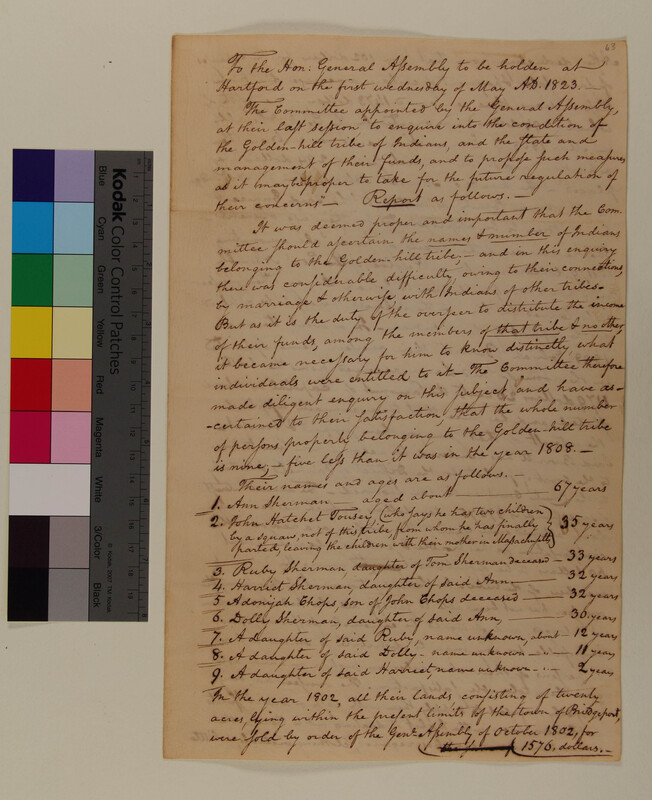 63
To the Hon. General Assembly to be holden at
Hartford on the first wednesday of May AD. 1823.
The Committee appointed by the General Assembly,
at their last session "to enquire into the condition of
the Golden-hill tribe of Indians, and the state and
management of their funds, and to propose such measures,
as it may be proper to take for the future regulation of
their concerns"— Report as follows.—
It was deemed proper and important that the Com-
mittee should ascertain the names & number of Indians
belonging to the Golden-hill tribe;— and in this enquiry
there was considerable difficulty owing to their connections,
by marriage & otherwise with Indians of other tribes.
But as it is the duty of the overseer to distribute the income
of their funds, among the members of that tribe & no other,
it became necessary for him to know distinctly what
individuals were entitled to it— The Committee therefore
made diligent enquiry on this subject, and have as-
-certained to their satisfaction, that the whole number
of persons properly belonging to the Golden-hill tribe
is nine,— five less than it was in the year 1808.—
Their names and ages are as follows.—
1. Ann Sherman — aged about — 67 years
2. John Hatchet Tousey (who says he has two children
by a squaw, not of this tribe, from whom he has finally
parted, leaving the children with their mother in Massachusetts) 35 years
3. Ruby Sherman, daughter of Tom Sherman deceased — 33 years
4. Harriet Sherman, daughter of said Ann — 32 years
5 Adonijah Chops, son of John Chops deceased — 32 years
6. Dolly Sherman, daughter of said Ann, — 30 years
7. A daughter of said Ruby, name unknown, about — 12 years
8. A daughter of said Dolly - name unknown — 11 years
9. A daughter of said Harriet, name unknown — 2 years
In the year 1802, all their lands consisting of twenty
acres, lying within the present limits of the town of Bridgeport,
were sold by order of the Genl. Assembly of October 1802, for
1576. dollars.—
Kodak Color Control Patches
Blue
Cyan
Green
Yellow
Red
Magenta
White
3/Color
Black